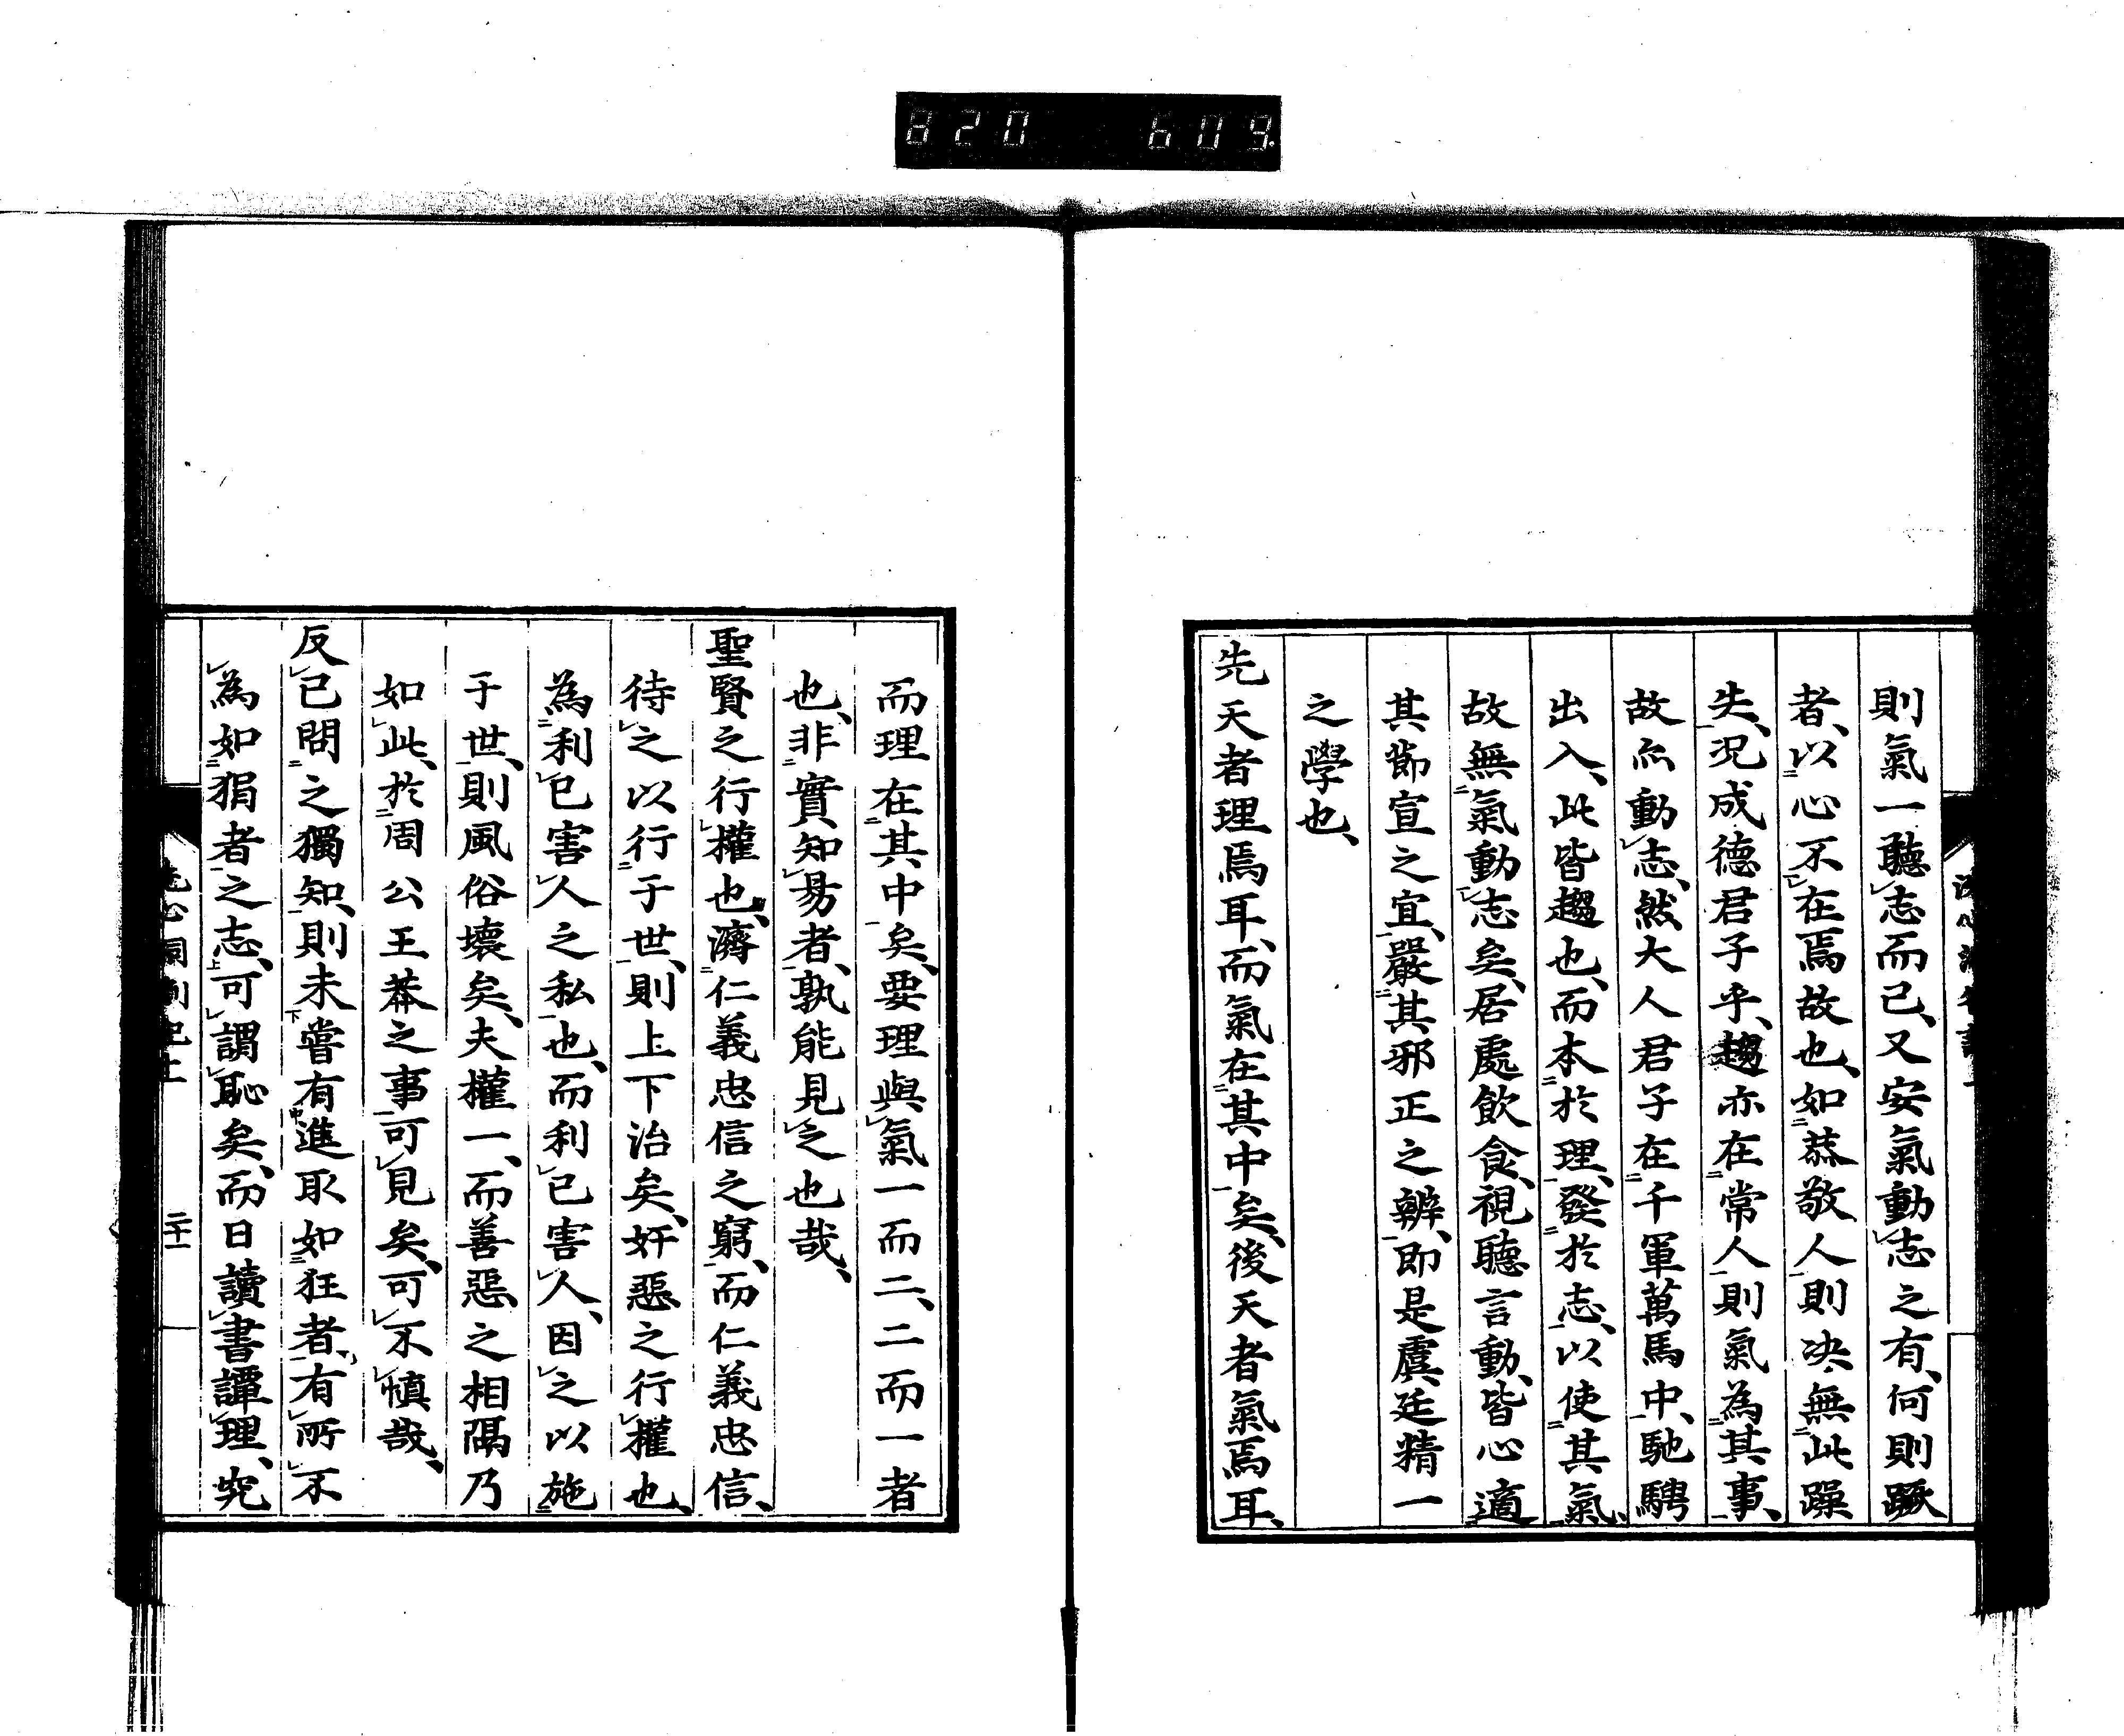 820 609
則氣一聽志而已、又安氣動志之有、何則蹶
者、以心不在焉故也、如恭敬人則決無此躁
失、況成德君子乎、趨亦在常人則氣為其事、
故亦動志、然大人君子在千軍萬馬中、馳騁
出入、此皆趨也、而本於理、發於志、以使其氣、
故無氣動志矣、居處飲食、視聽言動、皆心適
其節宣之宜、嚴其邪正之辨、即是虞廷精一
之學也、
先天者理焉耳、而氣在其中矣、後天者氣焉耳、
而理在其中矣、要理與氣一而二、二而一者
也、非實知易者、孰能見之也哉、
聖賢之行權也、濟仁義忠信之窮、而仁義忠信、
待之以行于世、則上下治矣、奸惡之行權也、
為利已害人之私也、而利已害人、因之以施
于世、則風俗壞矣、夫權一、而善惡之相隔乃
如此、於周公王莽之事可見矣、可不慎哉、
反已問之獨知、則未嘗有進取如狂者、有所不
為如狷者之志、可謂恥矣、而日讀書譚理、究
洗心洞劄記上 二十一